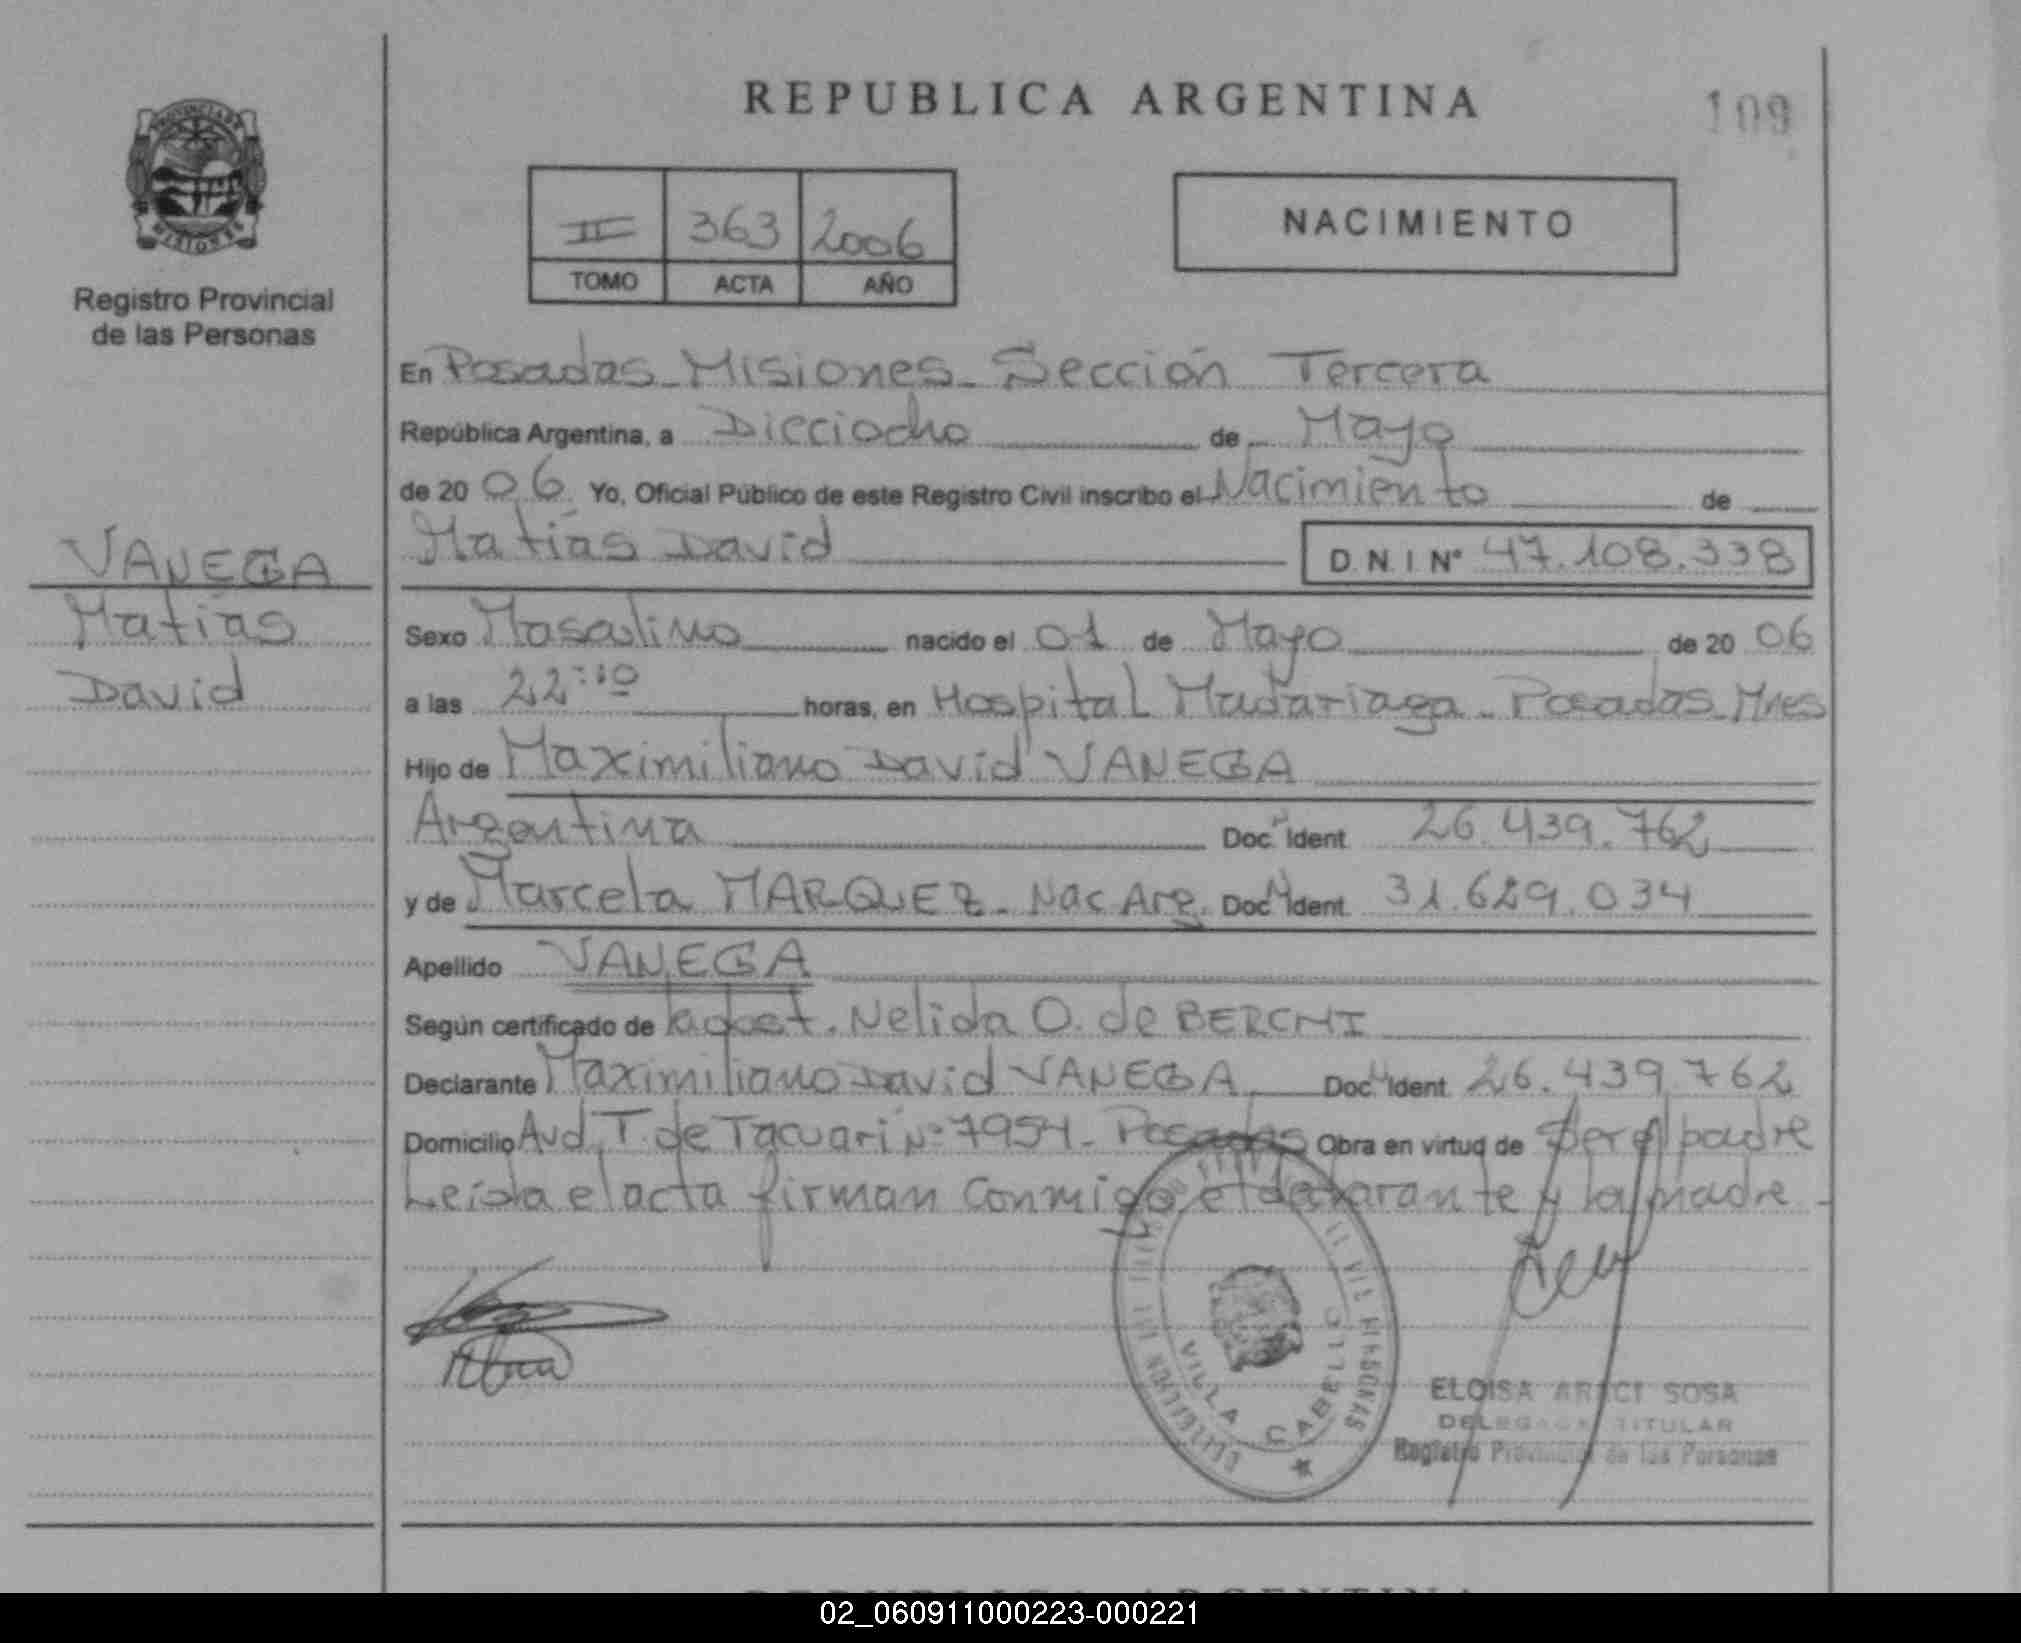 REPUBLICA ARGENTINA
109
PROVINCIA DE MISIONES
Registro Provincial
de las Personas
II 363 2006
TOMO ACTA AÑO
NACIMIENTO
En Posadas - Misiones - Sección Tercera
República Argentina, a Dieciocho de Mayo
de 20 06 Yo, Oficial Público de este Registro Civil inscribo el Nacimiento de
Matías David D.N.I Nº 47.108.338
VANEGA
Matías
David
Sexo Masculino nacido el 01 de Mayo de 20 06
a las 22:10 horas, en Hospital Madariaga - Posadas - Mnes
Hijo de Maximiliano David VANEGA
Argentina Doc. Ident. 26.439.762
y de Marcela MARQUEZ - Nac Arg. Doc. Ident. 31.629.034
Apellido VANEGA
Según certificado de Nelida O. de
Declarante Maximiliano David VANEGA Doc. Ident. 26.439.762
Domicilio Avd. T. de Tacuarí Nº 7954 - Posadas Obra en virtud de Ser el padre
Leída el acta firman conmigo el declarante y la madre -
VILLA CABELLO
ELOISA ARECI SOSA
DELEGADA TITULAR
Registro Provincial de las Personas
REPUBLICA ARGENTINA
02_060911000223-000221